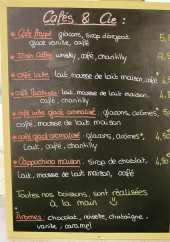 Cafés & Cie :
* Café frappé : glaçons, sirop d'orgeat
glace vanille, café
* Irish Coffee : whisky, café, chantilly
* Café latte : lait, mousse de lait maison, café
* : lait, mousse de lait maison
café, chantilly
* café latte glacé aromatisé : glaçons, arômes*
café, mousse de lait maison
* café glacé aromatisé : glaçons, arômes*
Lait, café, chantilly
* Cappuchino maison : sirop de chocolat,
Lait, mousse de lait maison, café
Toutes nos boissons, sont réalisées
à la main
Arômes : chocolat, noisette, chataîgne,
vanille, caramel